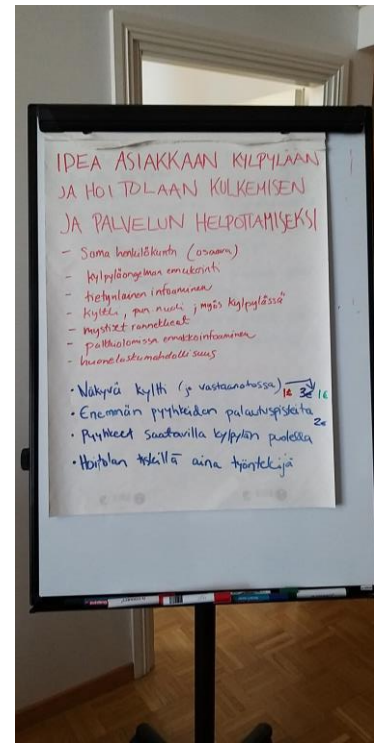 IDEA ASIAKKAAN KYLPYLÄÄN
JA HOITOLAAN KULKEMISEN
JA PALVELUN HELPOTTAMISEKSI
- Sama henkilökunta (osaava)
- kylpyläongelman ennakointi
- tietynlainen infoaminen
- kyltti, nuoli, myös kylpylässä
- mystiset rannekkeet
- ennakkoinfoaminen
- huonelaskumahdollisuus
• Näkyvä kyltti (jo vastaanotossa) 1€ 3€ 1€
• Enemmän pyyhkeiden palautuspisteitä
2€
• Pyyhkeet saatavilla kylpylän puolella
• Hoitolan tiskillä aina työntekijä